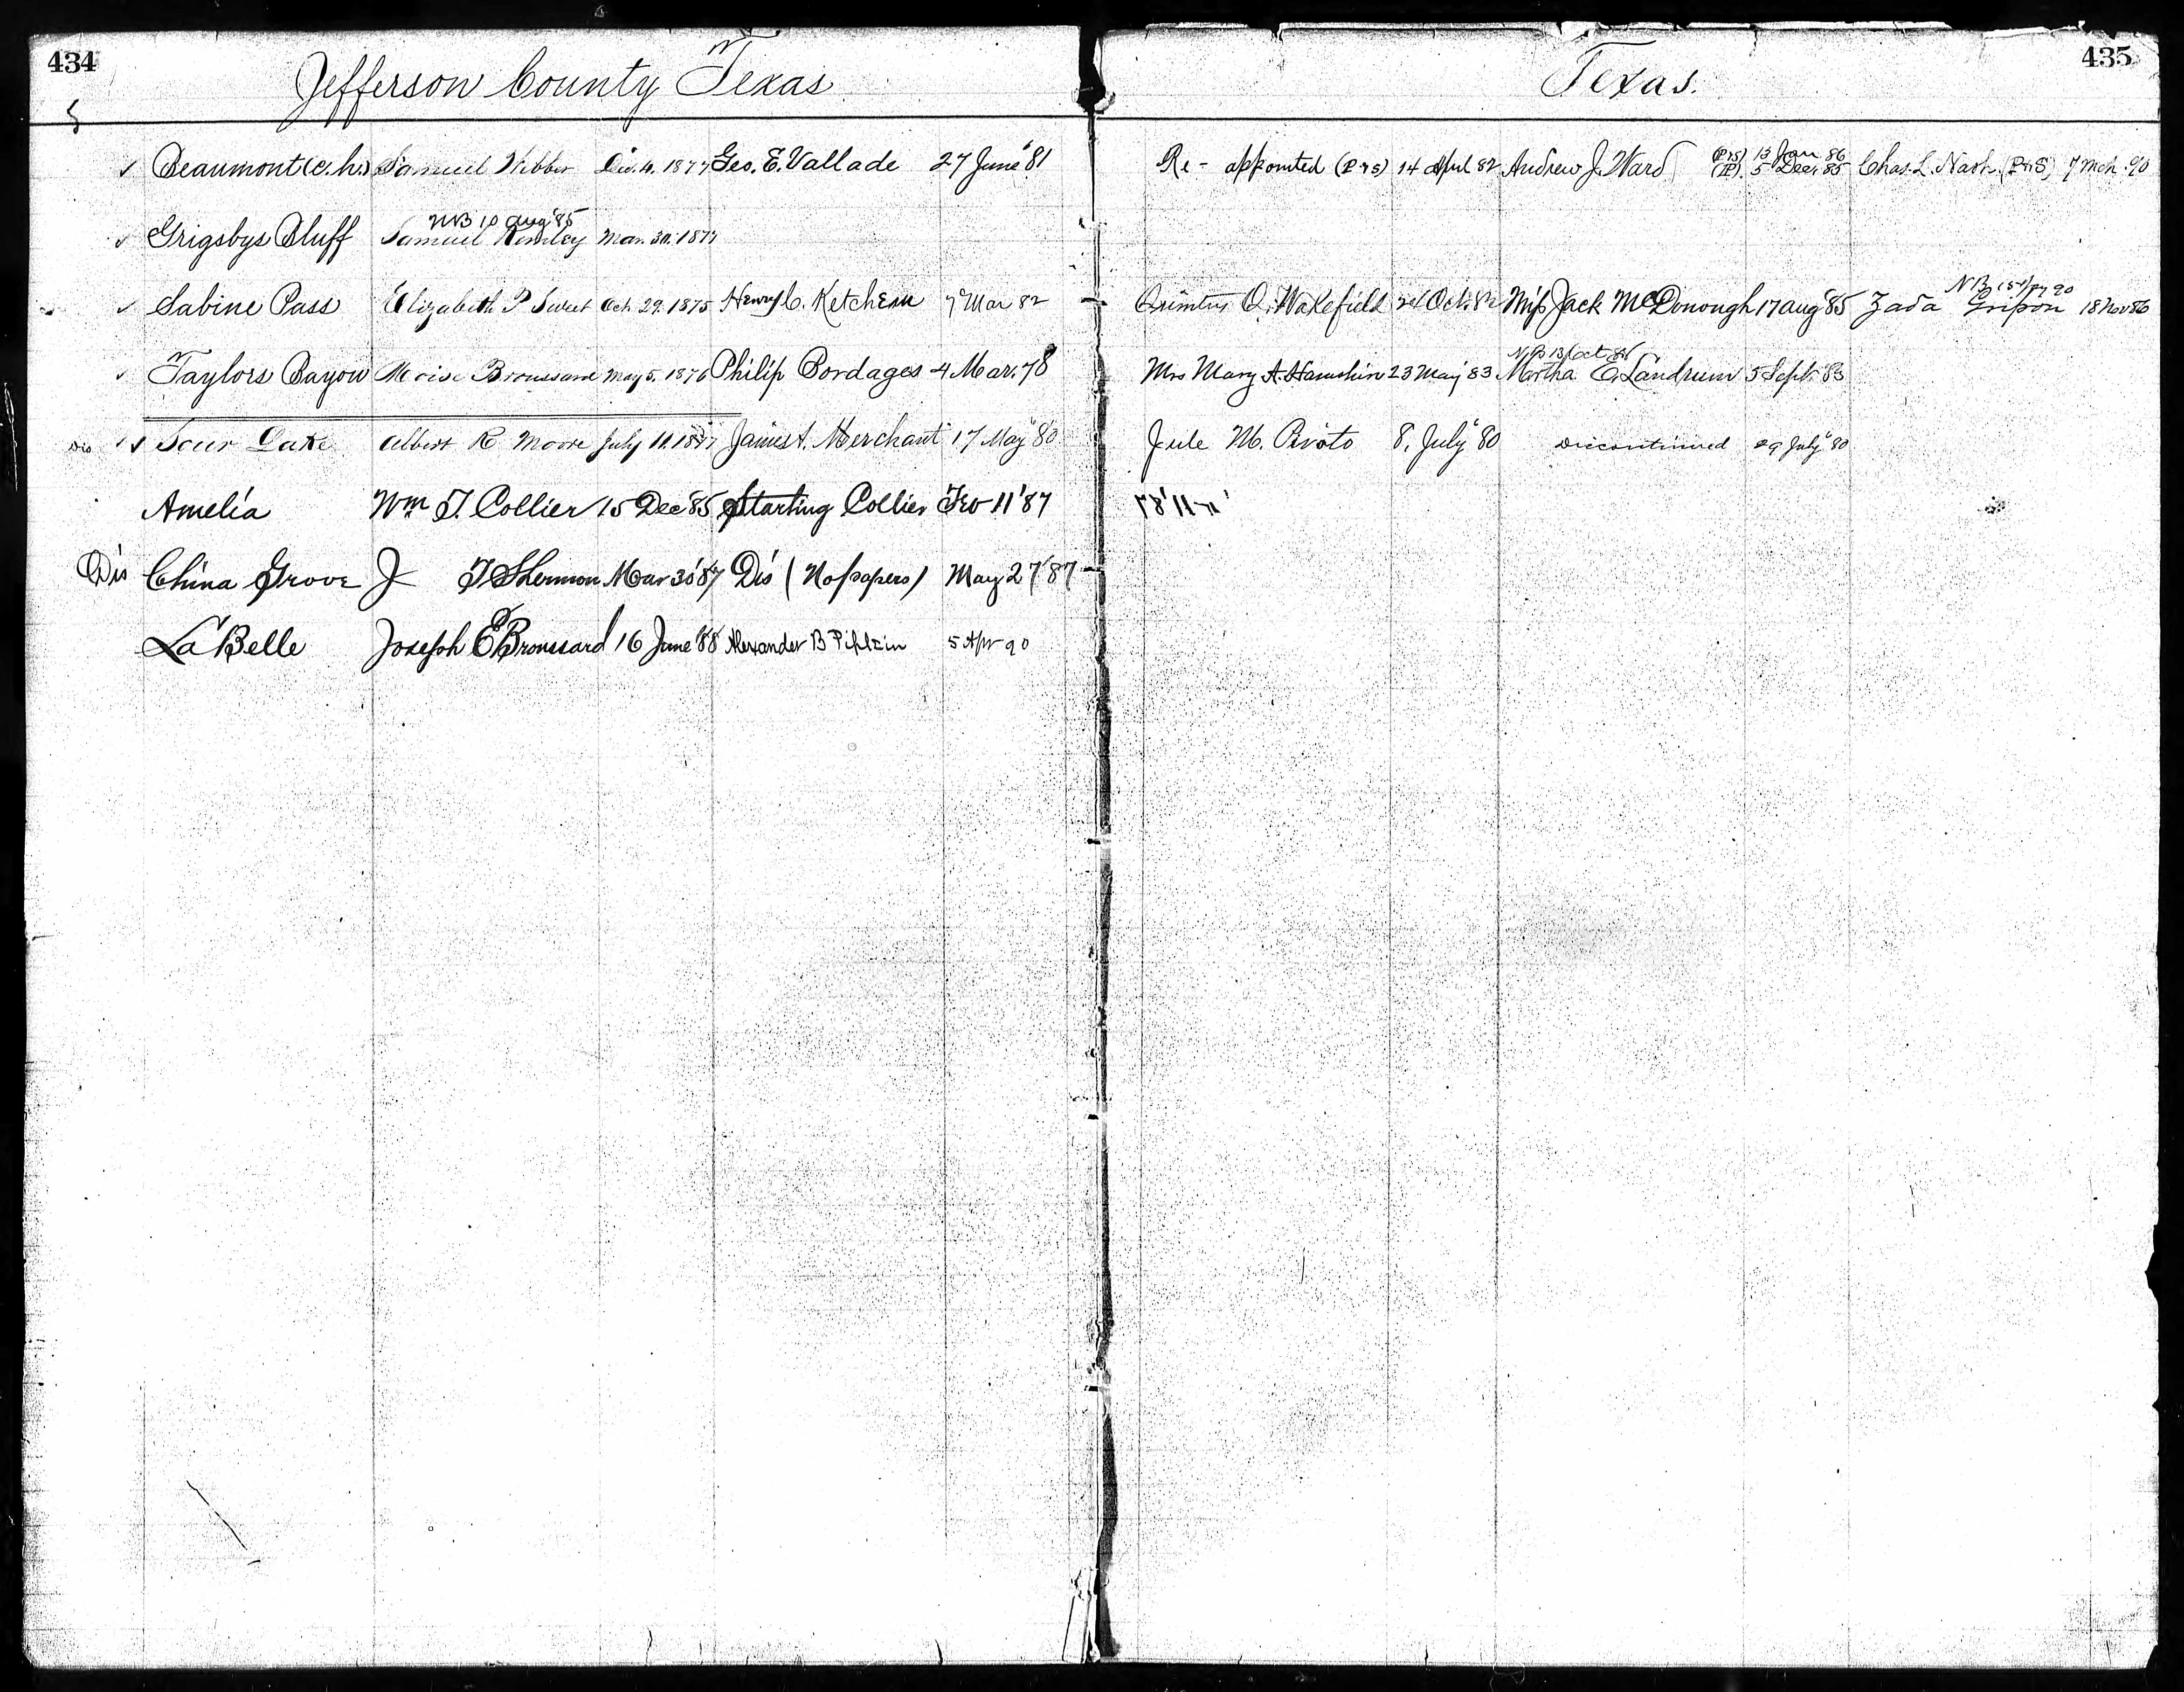 434
Jefferson County Texas
Texas.
435
Beaumont (c.h.) Samuel Webber Dec. 4. 1877 Geo. E. Vallade 27 June '81 Re-appointed (P&S) 14 April 82 Andrew J. Ward (P&S) 13 Jan 86 (P). 5 Dec. 85 Chas. L. Nash. (P&S) 7 Mch. 90
NB 10 Aug '85
Grigsbys Bluff Samuel Mar. 30. 1877
NB 15 Apr 90
Sabine Pass Elizabeth P Sweet Oct. 29. 1875 Henry C. Ketchem 7 Mar 82 Quintus Q. Wakefield Oct. 82 Miss Jack McDonough 17 Aug '85 Zada Gripon 18 Nov 86
NB 13 Oct
Taylors Bayou Moise Broussard May 5. 1876 Philip Bordages 4 Mar. 78 Mrs Mary A. 23 May '83 Martha E. Landrum 5 Sept. 83
Dis Sour Lake Albert R Moore July 11. 1877 James A. Merchant 17 May '80 Jule M. Pivoto 8, July '80 Discontinued 29 July '80
Amelia Wm. T. Collier 15 Dec 85 Starting Collier Feb 11 '87
Dis China Grove J T Shermon Mar 30 '87 Dis (No papers) May 27 '87
La Belle Joseph E Broussard 16 June '88 Alexander B Pipkin 5 Apr 90